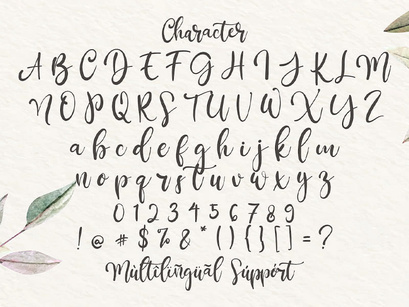 Character
A B C D E F G H I J K L M
N O P Q R S T U V W X Y Z
a b c d e f g h i j k l m
n o p q r s t u v w x y z
0 1 2 3 4 5 6 7 8 9
! @ # $ % & * ( ) { } [ ] = ?
Múltílíngüãl Süppórt